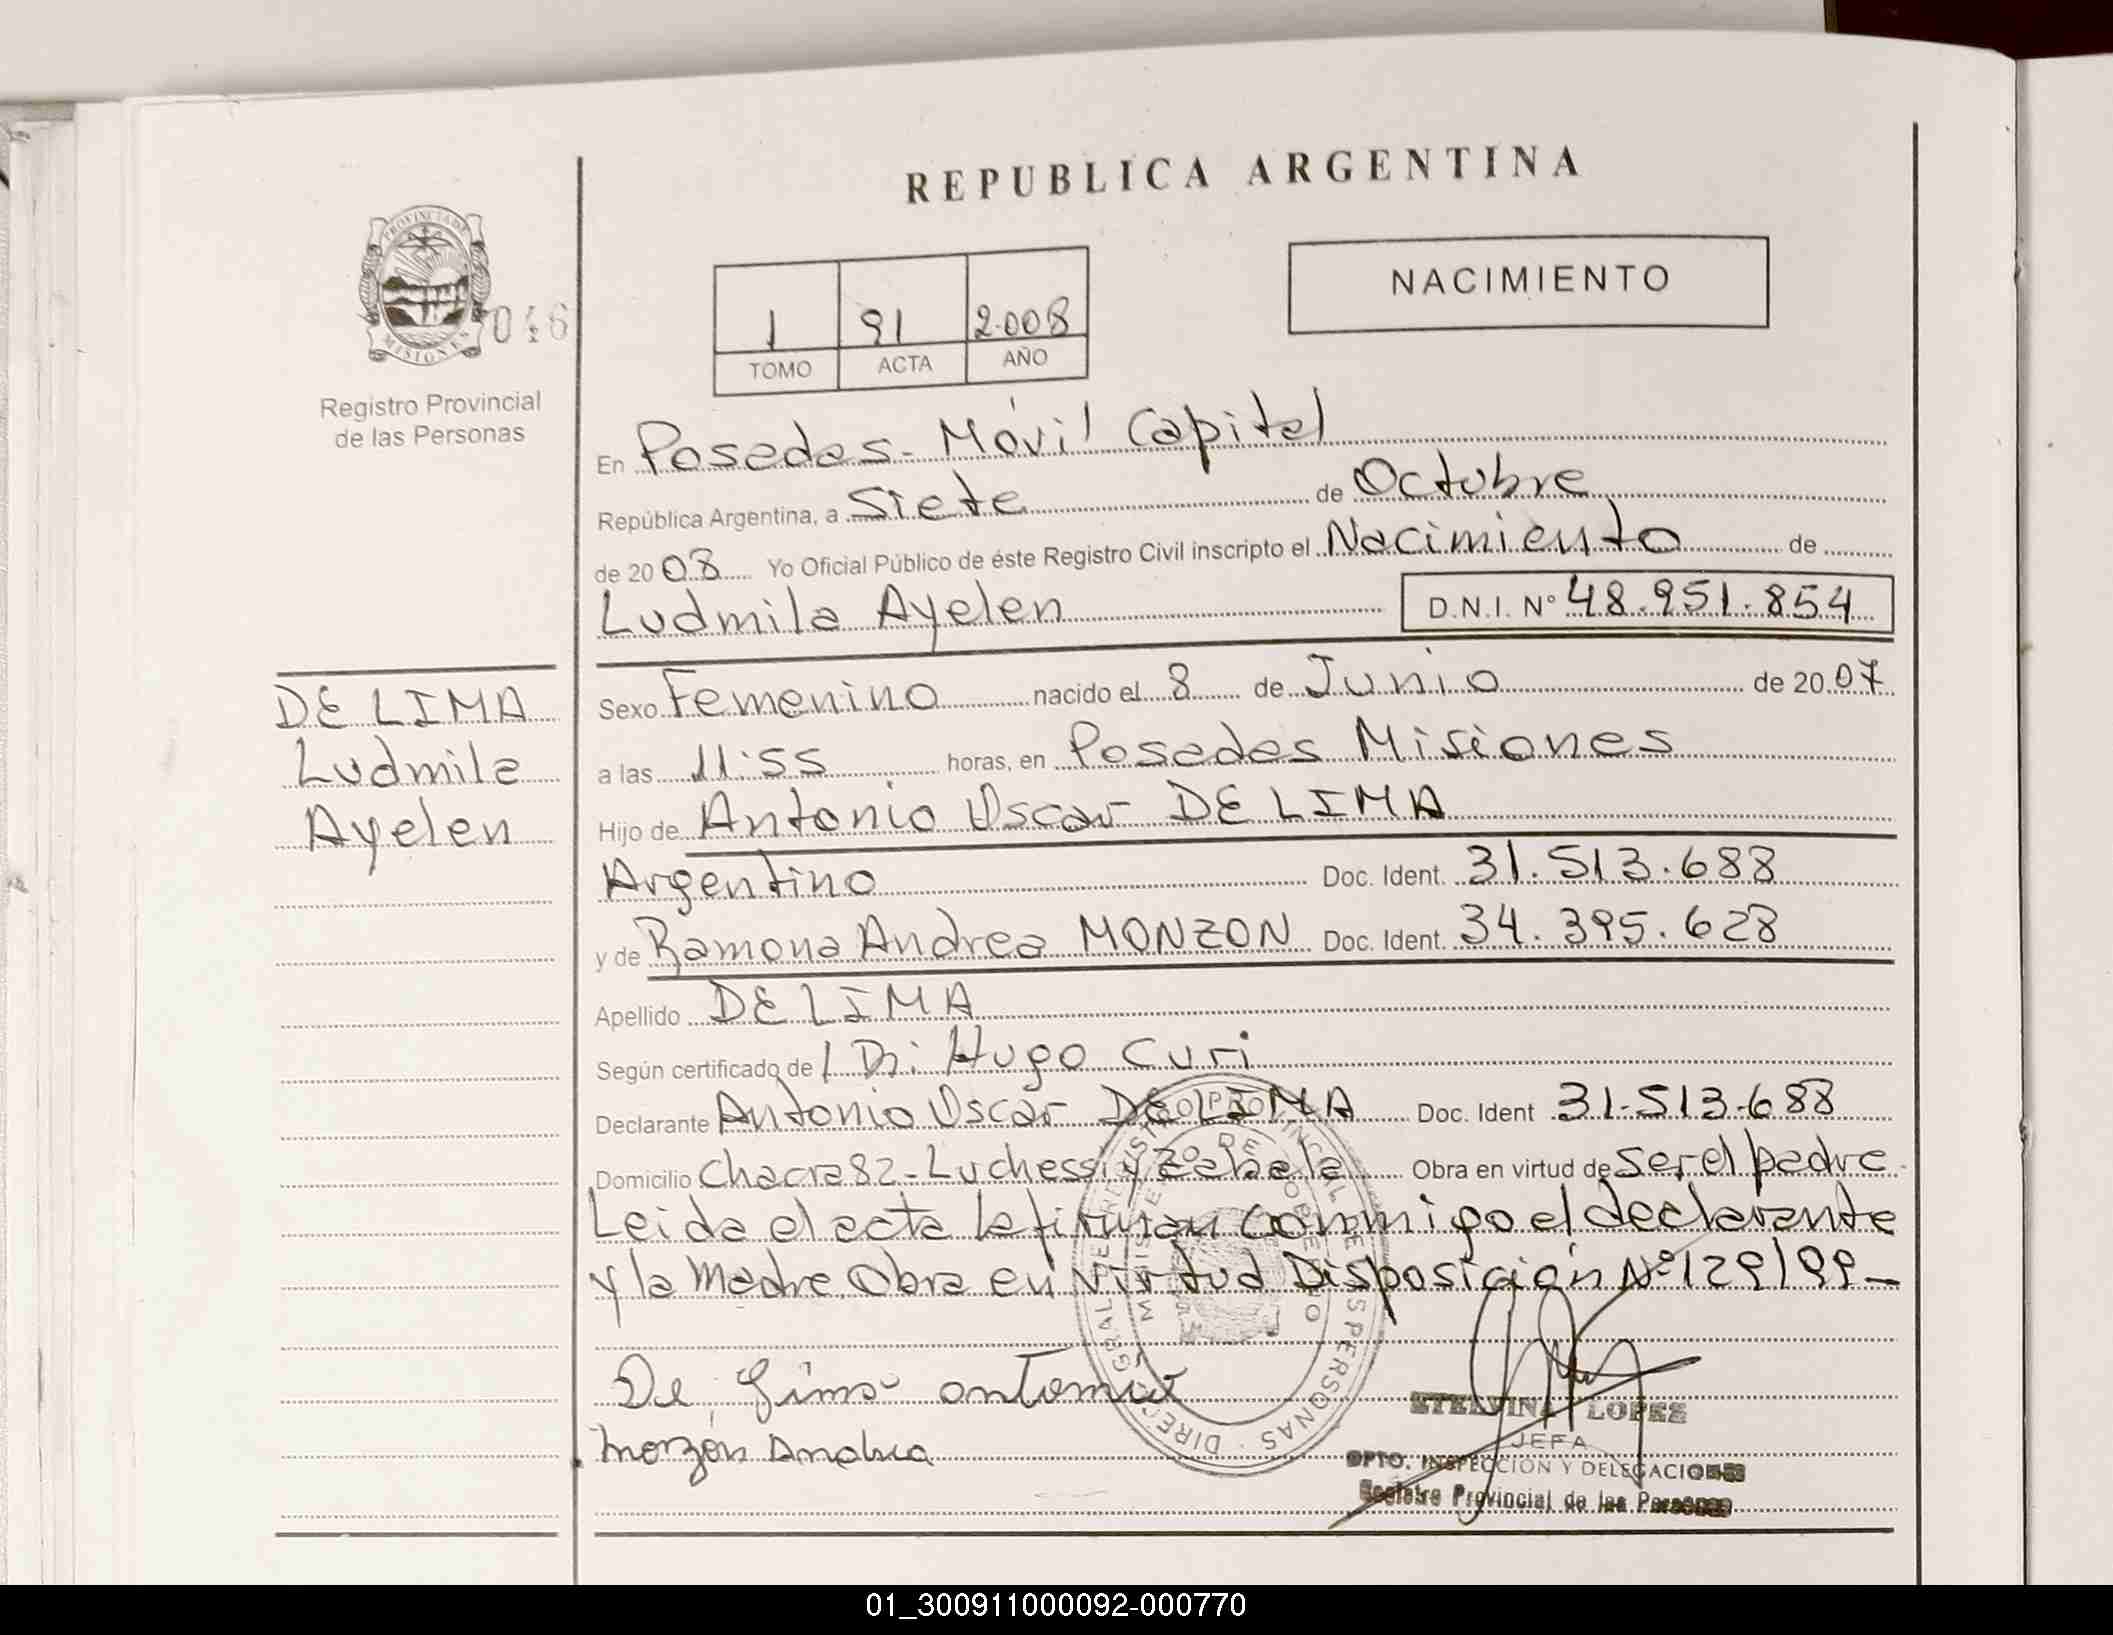 REPUBLICA ARGENTINA
PROVINCIA DE
MISIONES
046
Registro Provincial
de las Personas
1 91 2.008
TOMO ACTA AÑO
NACIMIENTO
En Posadas - Móvil Capital
República Argentina, a Siete de Octubre
de 2008 Yo Oficial Público de éste Registro Civil inscripto el Nacimiento de
Ludmila Ayelen D.N.I. N° 48.951.854
DE LIMA
Ludmila
Ayelen
Sexo Femenino nacido el 8 de Junio de 2007
a las 11:55 horas, en Posadas Misiones
Hijo de Antonio Oscar DE LIMA
Argentino Doc. Ident. 31.513.688
y de Ramona Andrea MONZON Doc. Ident. 34.395.628
Apellido DE LIMA
Según certificado de / Dr: Hugo Curi
Declarante Antonio Oscar DE LIMA Doc. Ident 31.513.688
Domicilio Chacra 82 - Luchessi y Zabala Obra en virtud de ser el padre
Leida el acta la firman conmigo el declarante
y la Madre. Obra en virtud Disposición N° 129/99 -
De Lima Antonio
Monzón Andrea
ETELVINA LOPEZ
JEFA
DPTO. INSPECCION Y DELEGACIONES
Registro Provincial de las Personas
01_300911000092-000770